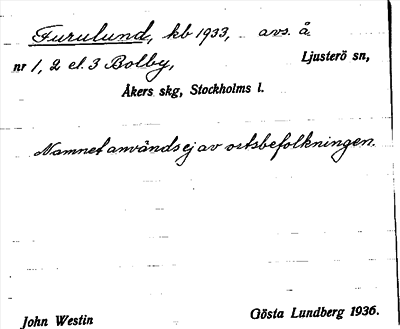 Furulund, kb 1933, avs. å
nr 1, 2 el. 3 Bolby, Ljusterö sn,
Åkers skg, Stockholms l.
Namnet används ej av ortsbefolkningen.
John Westin Gösta Lundberg 1936.